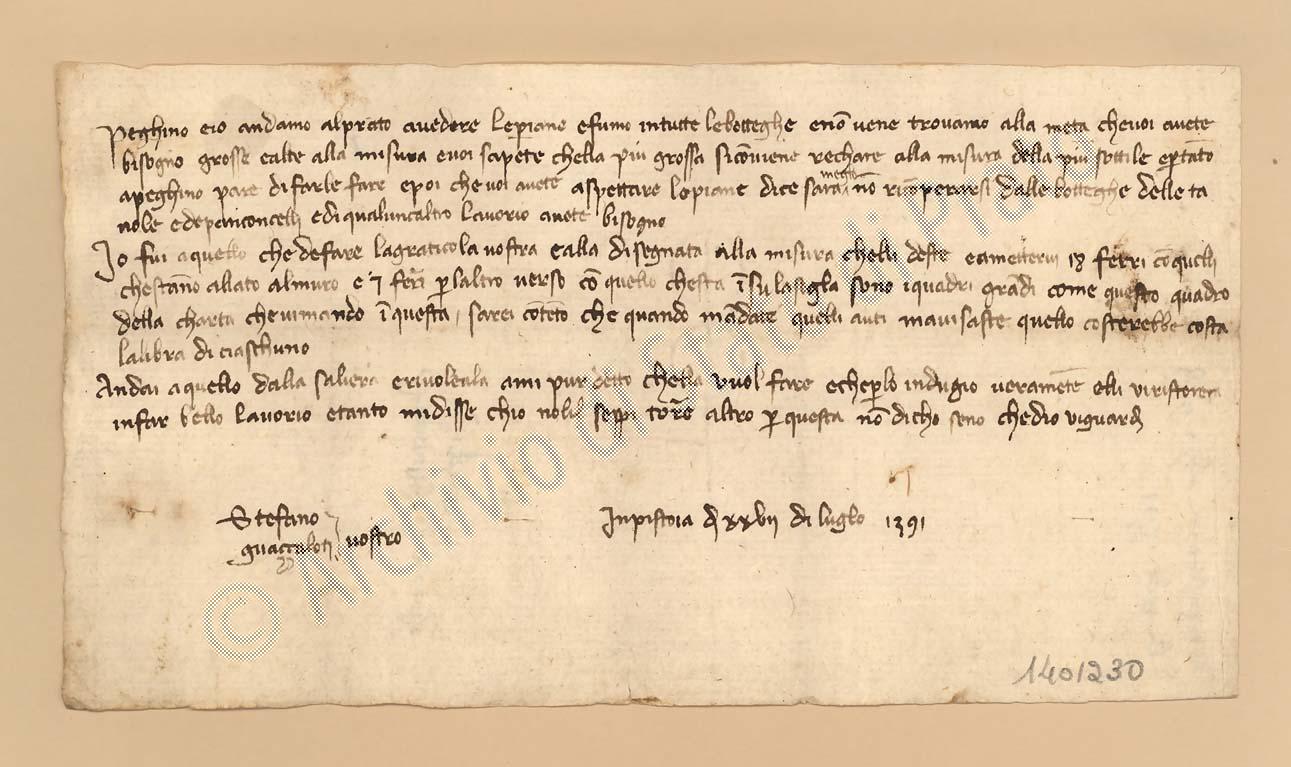 Peghino eio andamo alprato avedere lepiane efumo intutte lebotteghe enō vene trovamo alla meta chevoi avete
bisogno grosse ealte alla misura evoi sapete chella piu grossa sicōviene rechare alla misura della piu sottile epertāto
apeghino pare difarle fare epoi chevoi avete aspettare lepiane dice sara meglo nō dalle botteghe delle ta
vole edepanconcelli edi qualuncaltro lavorio avete bisogno
Io fui aquello che defare lagraticola vostra ealla disegnata alla misura chelli deste emettervi 13 ferri cō quelli
chestāno allato almuro e 7 ferri p laltro verso cō quello chesta ī sulasogla sono iquadri grādi come questo quadro
della charta chevimando ī questa, sarei cōtēto che quando mādate quelli mavisaste quello costerebbe costa
lalibra di ciaschuno
Andai aquello dalla saliera erivoleala ami pur detto chella vuol fare echeperlo indugio veramēte elli viristorera
infar bello lavorio etanto midisse chio noli seppi torre altro p questa nō dicho seno chedio viguardi
Stefano
guazzaloti vostro
Inpistoia dì xxvii di luglo 1391
1401230
© Archivio di Stato di Prato